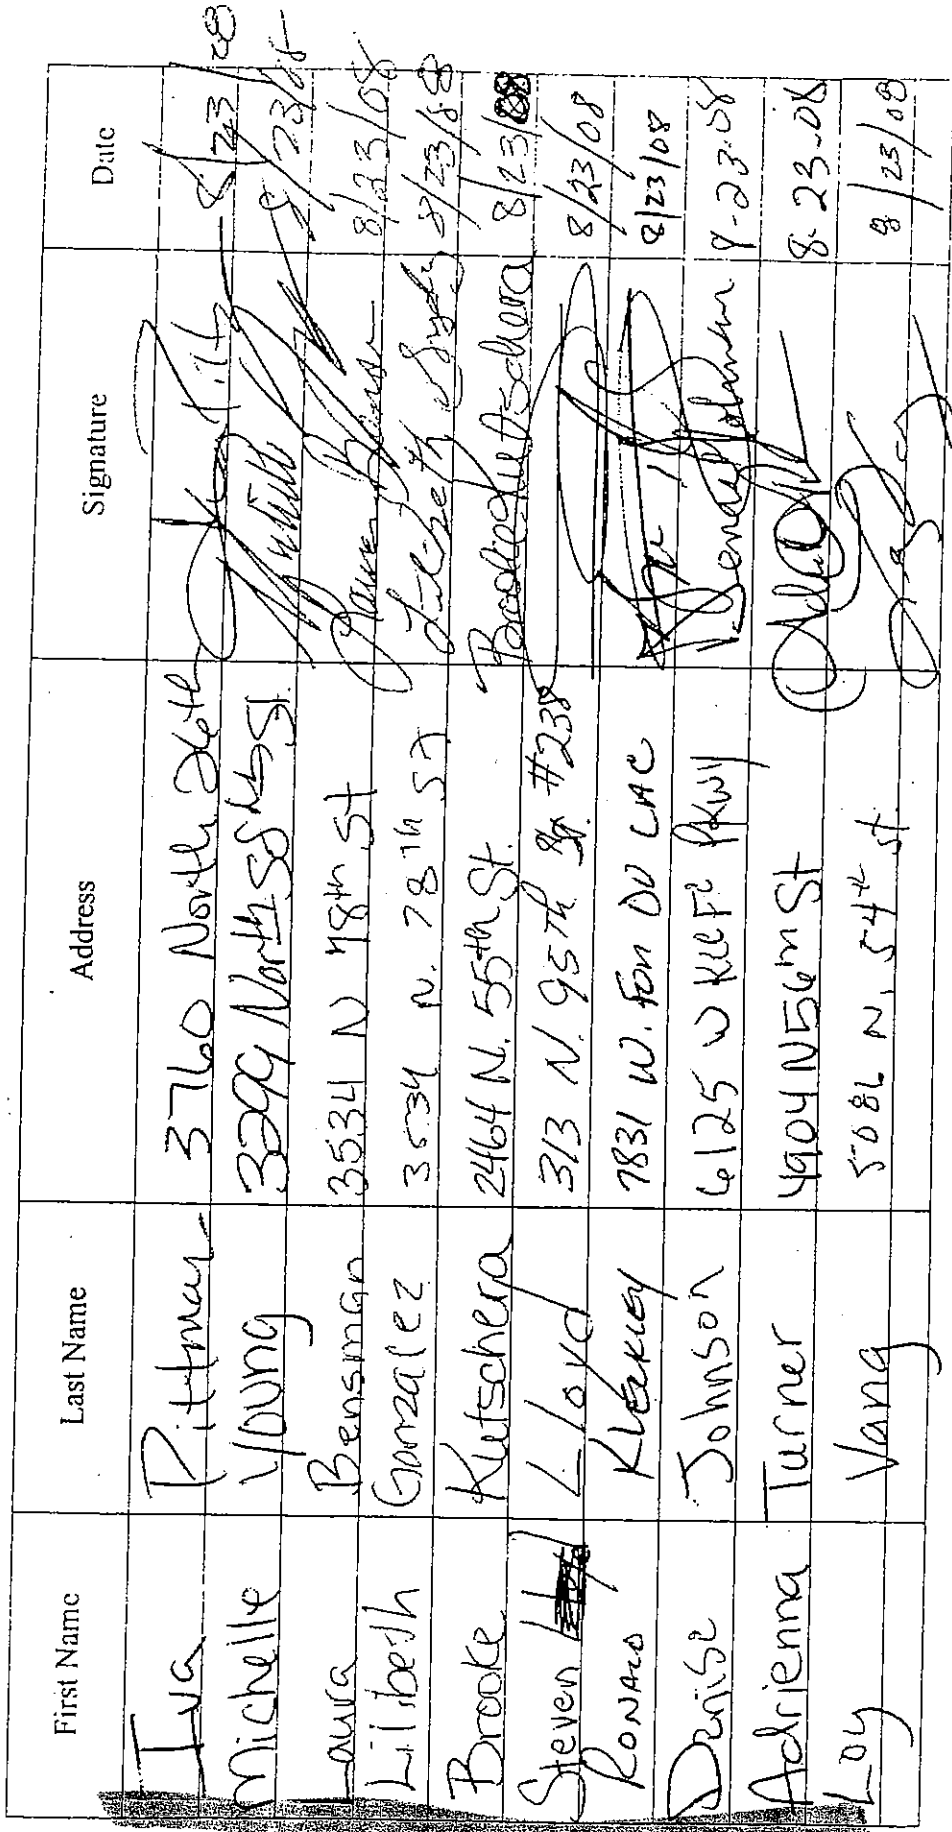 First Name Last Name Address Signature Date
Iva Pittman 3760 North 26th 8/23/08
Michelle Young 3299 North 58th St. 8/23/08
Laura Bensman 3534 N 78th St 8/23/08
Lilibeth Gonzalez 3534 N. 78th St 8/23/08
Brooke Kutschera 2464 N. 55th St. Brooke Kutschera 8/23/08
Steven Lloyd 313 N. 95th St. #238 8/23/08
Ronald 7831 W. Fon DU LAC 8/23/08
Denise Johnson 6125 W PKWY Denise Johnson 8-23-08
Adrienna Turner 4904 N 56th St 8-23-08
Loy Vang 5086 N. 54th st. 8/23/08